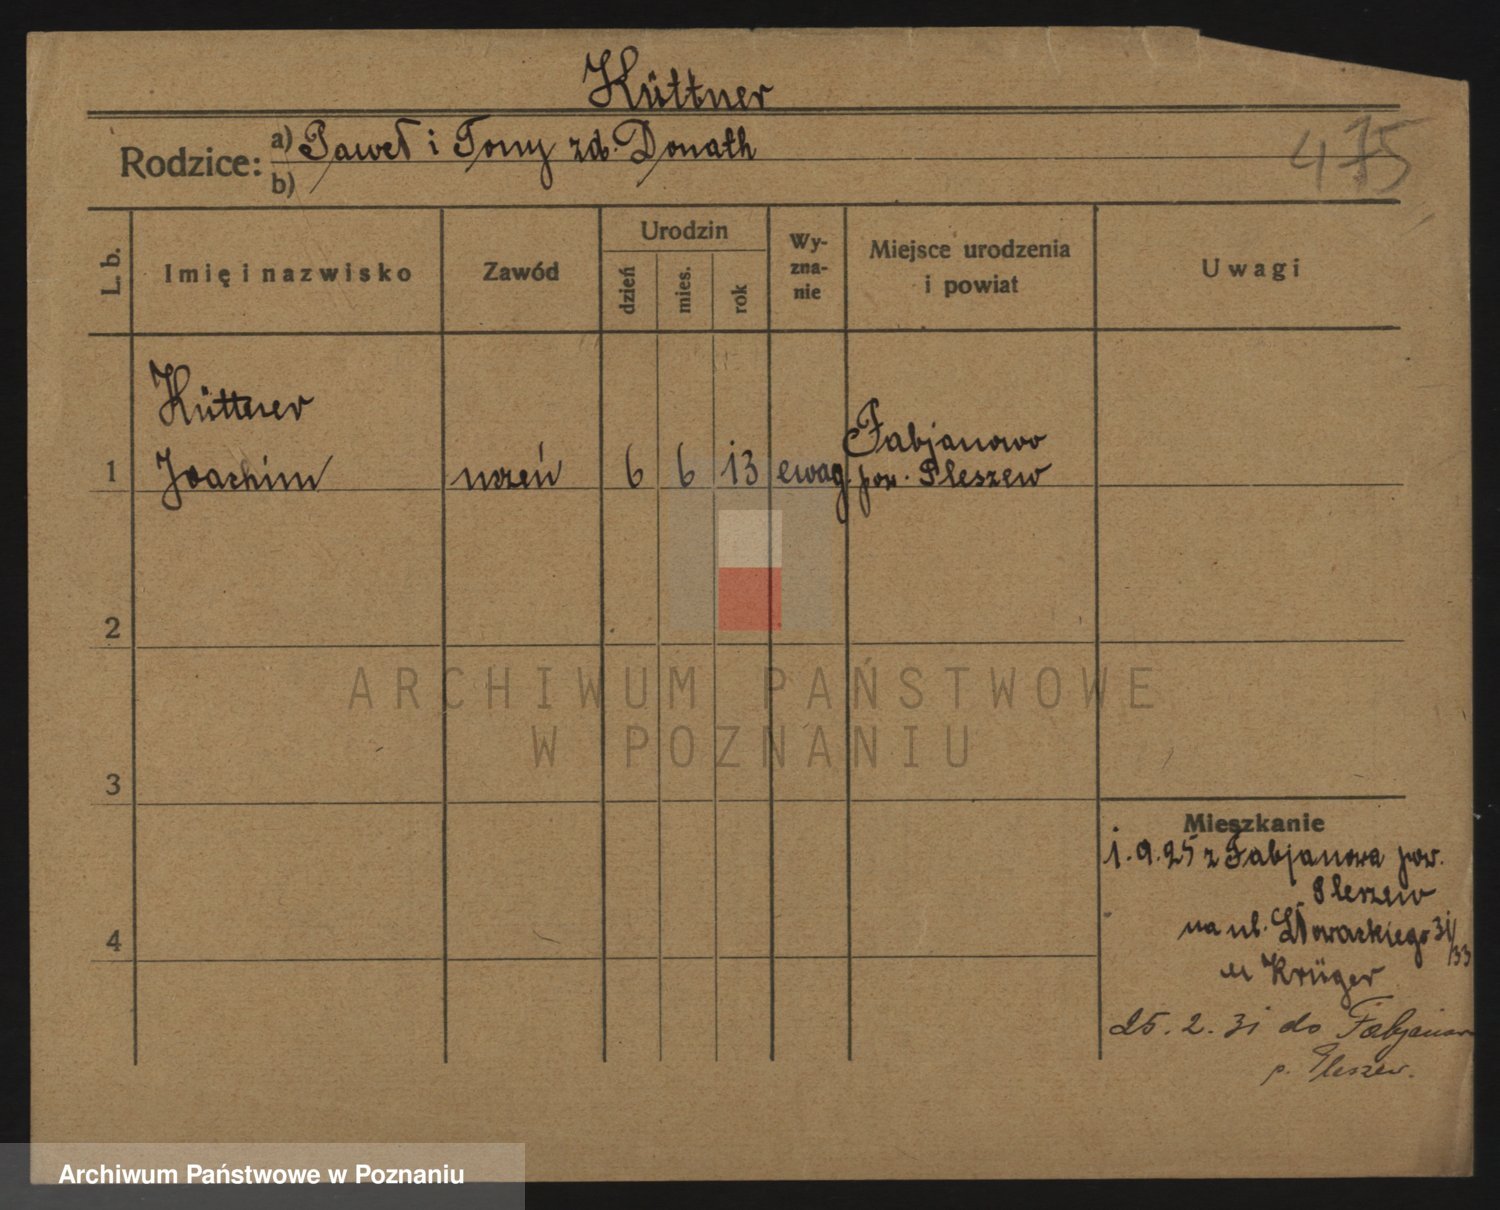 Küttner
475
Rodzice: a) Paweł i Tony zd. Donath
b)
L. b.
Imię i nazwisko
Zawód
Urodzin
dzień
mies.
rok
Wy-
zna-
nie
Miejsce urodzenia
i powiat
Uwagi
Küttner
Joachim
1
uczeń
6
6
13
ewag.
Fabjanowo
pow. Pleszew
2
3
4
ARCHIWUM PAŃSTWOWE
W POZNANIU
Mieszkanie
1.9.25 z Fabjanowa pow.
Pleszew
na ul. Słowackiego 31/33
u Krüger
25.2.31 do
p. Pleszew.
Archiwum Państwowe w Poznaniu